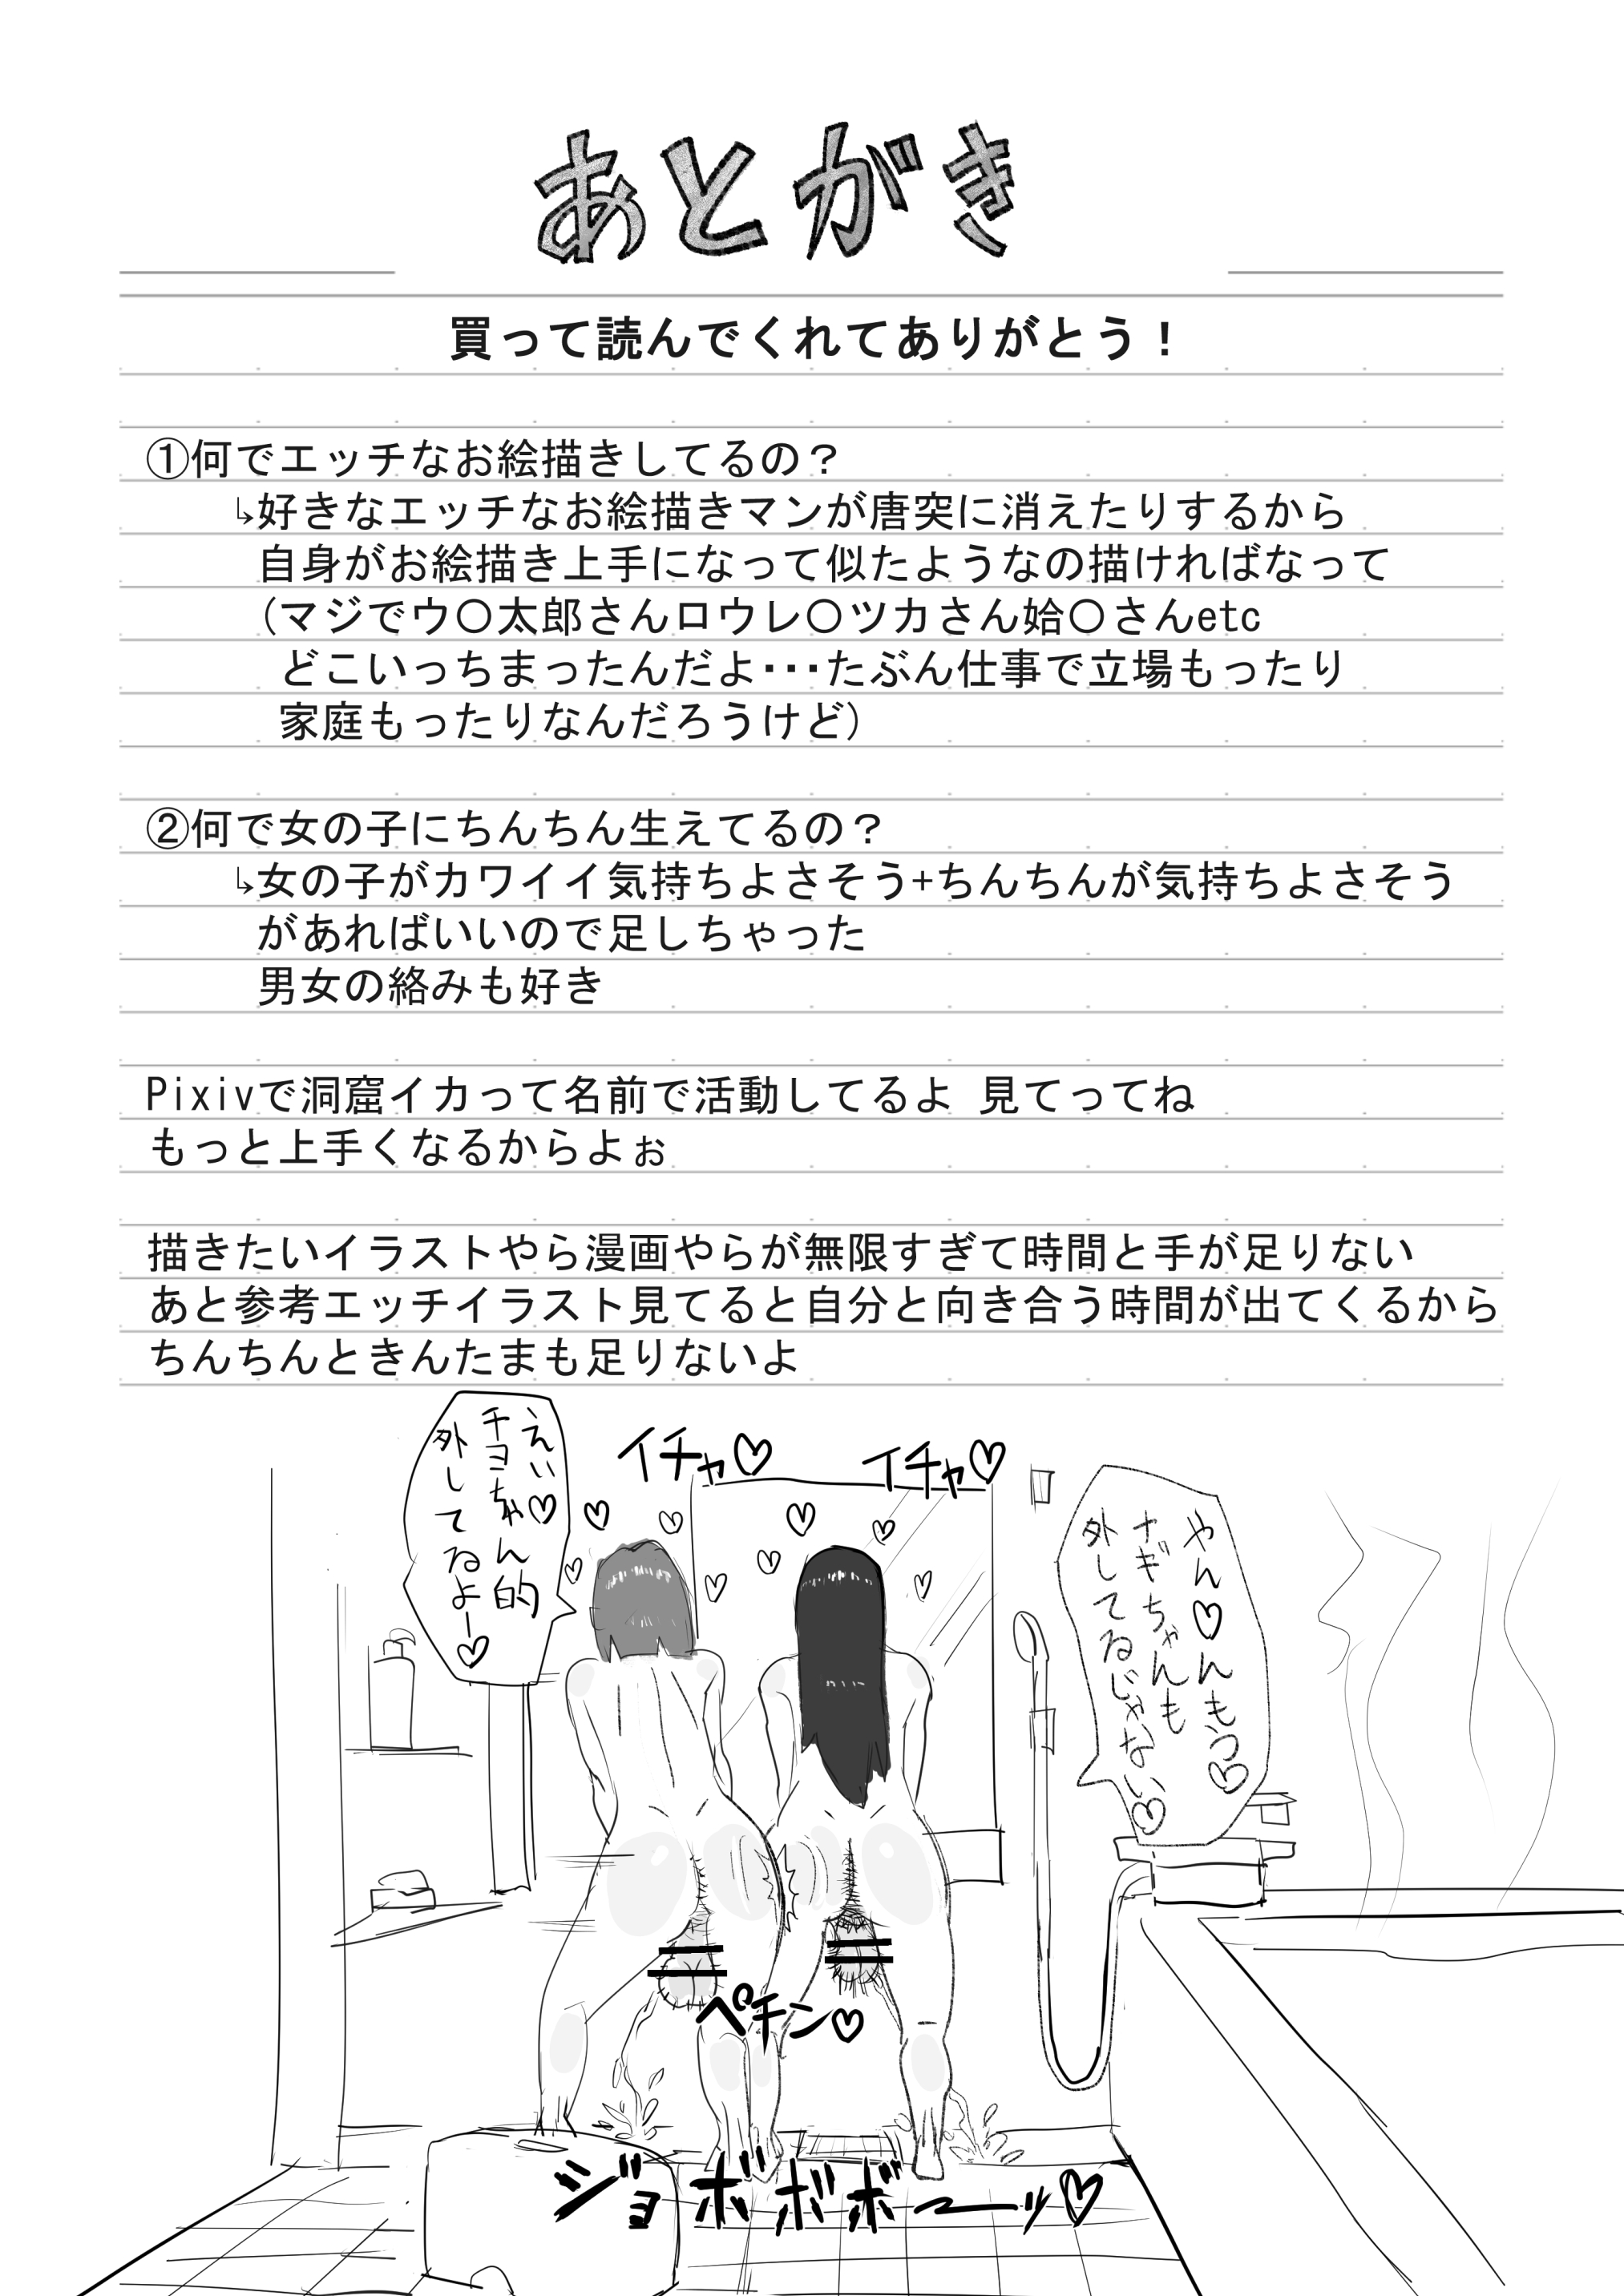 あとがき
買って読んでくれてありがとう！
①何でエッチなお絵描きしてるの？
↳好きなエッチなお絵描きマンが唐突に消えたりするから
自身がお絵描き上手になって似たようなの描ければなって
（マジでウ〇太郎さんロウレ〇ツカさん姶〇さんetc
どこいっちまったんだよ･･･たぶん仕事で立場もったり
家庭もったりなんだろうけど）
②何で女の子にちんちん生えてるの？
↳女の子がカワイイ気持ちよさそう+ちんちんが気持ちよさそう
があればいいので足しちゃった
男女の絡みも好き
Pixivで洞窟イカって名前で活動してるよ 見てってね
もっと上手くなるからよぉ
描きたいイラストやら漫画やらが無限すぎて時間と手が足りない
あと参考エッチイラスト見てると自分と向き合う時間が出てくるから
ちんちんときんたまも足りないよ
やん♡んもぅ♡
ナギちゃんも
外してるじゃない♡
イチャ♡
イチャ♡
えい♡
チヨちゃん的
外してるよー♡
ペチン♡
ジョボボボーッ♡